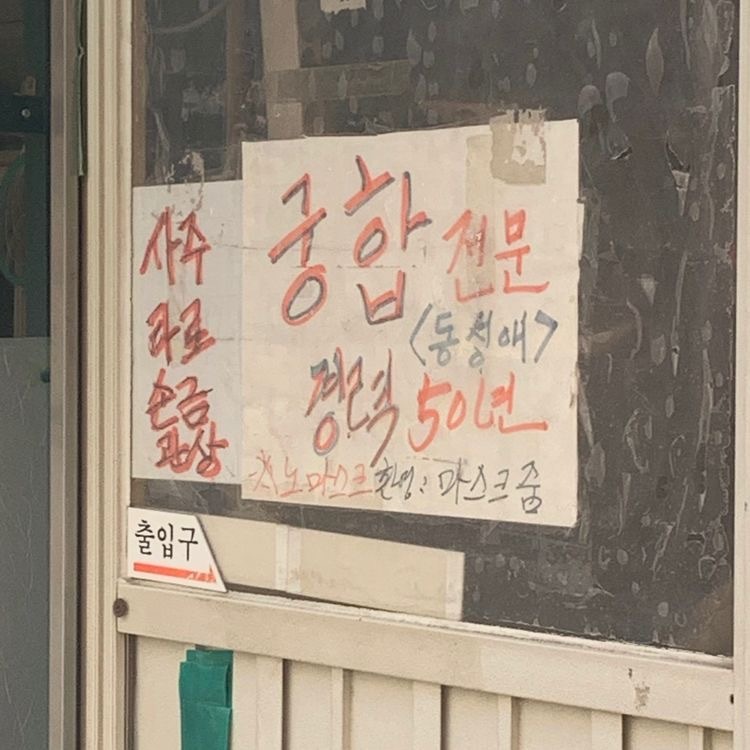 사주
타로
손금
관상
궁합 전문
<동성애>
경력 50년
※노마스크 환영: 마스크 줌
출입구